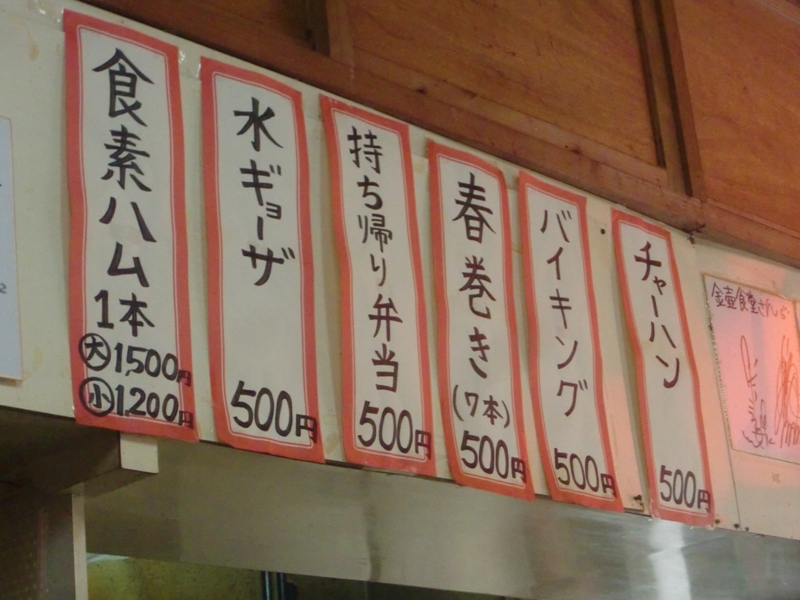 食素ハム
1本
大 1,500円
小 1,200円
水ギョーザ
500円
持ち帰り弁当
500円
春巻き
(7本)
500円
バイキング
500円
チャーハン
500円
金壺食堂さん